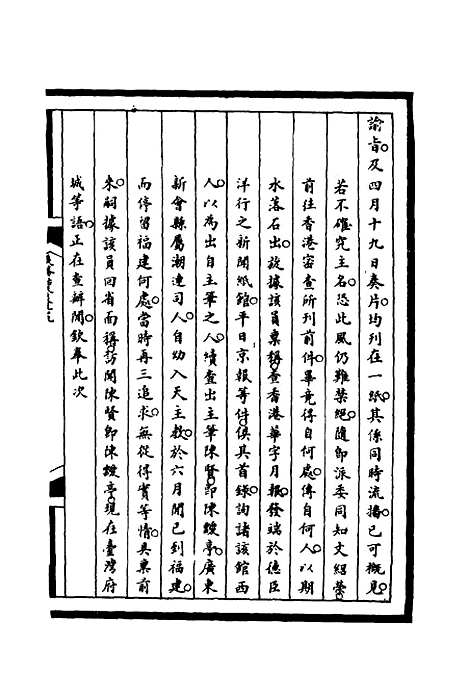 諭旨及四月十九日奏片均列在一紙其係同時流播已可概見
若不確究主名恐此風仍難禁絕隨即派委同知文紹榮
前往香港密查所刊前件畢竟得自何處傳自何人以期
水落石出茲據該員稟稱查香港華字月報發端於德臣
洋行之新聞紙館平日京報等件俱其首錄詢諸該館西
人以為出自主筆之人續查出主筆陳賢即陳靉亭廣東
新會縣屬潮連司人自幼入天主教於六月聞已到福建
而停留福建何處當時再三追求無從得實等情具稟前
來嗣據該員回省面稱訪聞陳賢即陳靉亭現在臺灣府
城等語正在查辦聞欽奉此次